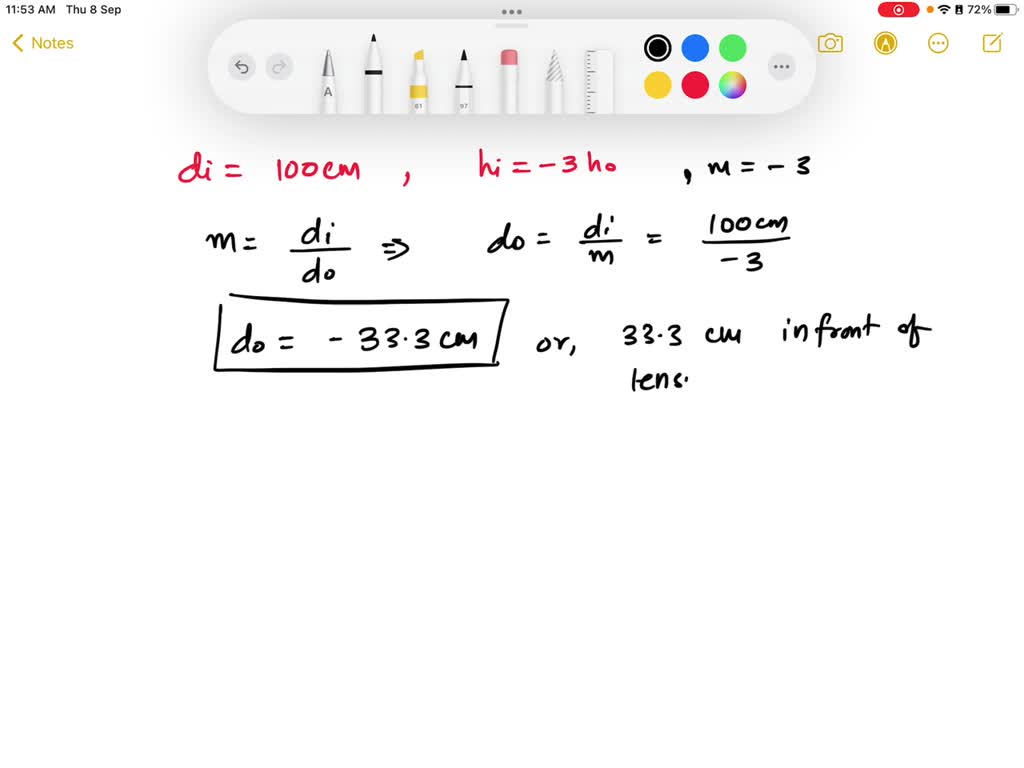 11:53 AM Thu 8 Sep 72%
Notes
A 61 97
di = 100cm , hi = -3 ho , m = -3
m = di/do ⇒ do = di/m = 100cm/-3
do = -33.3 cm or, 33.3 cm infront of
lens.